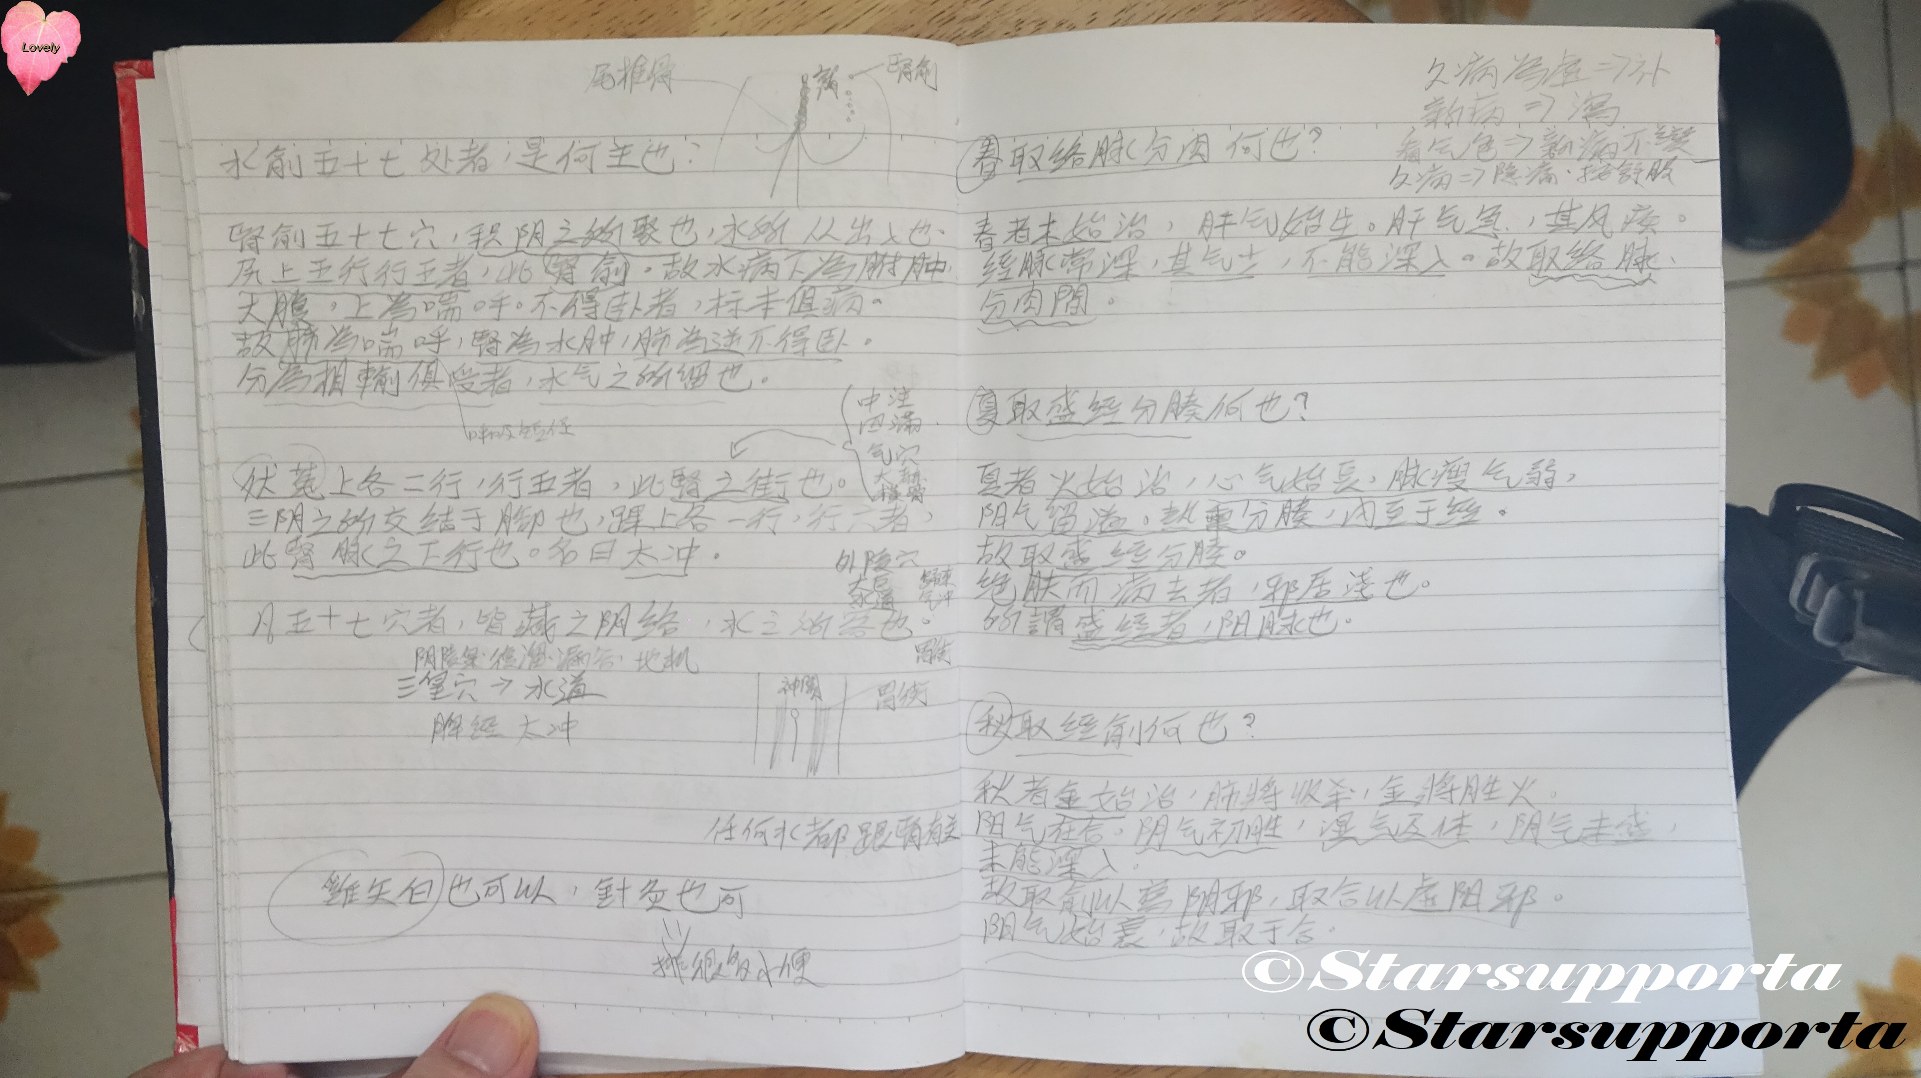 Lovely
尾椎骨
腎俞
水俞五十七处者，是何主也？
腎俞五十七穴，积阴之所聚也，水所从出入也。
尻上五行行五者，此腎俞。故水病下為胕肿
大腹，上為喘呼。不得卧者，标本俱病。
故肺為喘呼，腎為水肿，肺為逆不得卧。
分為相輸俱受者，水气之所留也。
中注
四滿
气穴
大赫
伏菟上各二行，行五者，此腎之街也。
三阴之所交结于脚也，踝上各一行，行六者，
此腎脉之下行也。名曰太冲。
外陵穴
凡五十七穴者，皆藏之阴络，水之所客也。
阴陵泉·復溜·漏谷·地机
三皇穴→水道
神闕
胃街
脾经 太冲
任何水都跟腎有关
雞矢白也可以，針灸也可
排很多小便
久病為虛⇒补
新病⇒瀉
看气色⇒新病不變
久病⇒隐病·按舒服
春取络脉分肉何也？
春者木始治，肝气始生。肝气急，其风疾。
经脉常深，其气士，不能深入。故取络脉、
分肉間。
夏取盛经分腠何也？
夏者火始治，心气始長，脉瘦气弱，
阳气留溢，熱熏分腠，内至于经。
故取盛经分腠。
绝肤而病去者，邪居浅也。
所謂盛经者，阳脉也。
秋取经俞何也？
秋者金始治，肺將收杀，金將胜火，
阳气在合，阴气初胜，湿气及体，阴气未盛，
未能深入。
故取俞以瀉阴邪，取合以虛阳邪。
阳气始衰，故取于合。
©Starsupporta
©Starsupporta